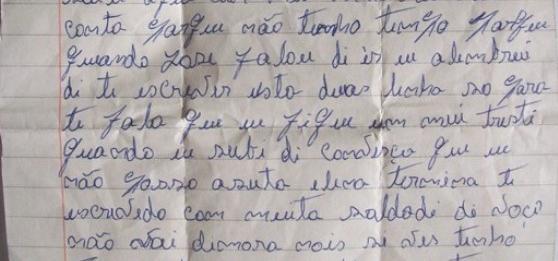 conta porque não tenho tempo porque
quando jose falou di ir eu alembrei
di ti escrever esta duas linha so para
ti fala que eu fique um mui tristi
quando eu subi di condisço que eu
não posso a elena termina ti
escrevedo com muita saldadi di voçi
não vai dimora mais si ves tenho